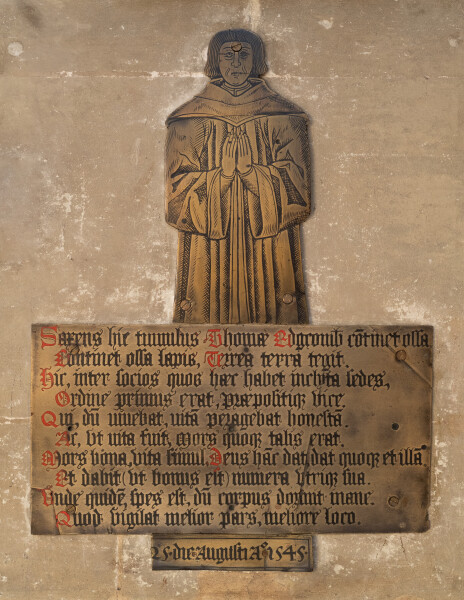 Saxeus hic tumulus Thomæ Edgcomb cōtinet ossa
Continet ossa lapis, Terrea terra tegit.
Hic, inter socios quos hæc habet inclyta sedes,
Ordine primus erat, præpositiq; vice.
Qui, dū uiuebat, uitā peragebat honestā.
Ac, vt uita fuit, mors quoq; talis erat.
Mors bona, vita simul, Deus hāc dat, dat quoq; et illā.
Et dabit (vt bonus est) munera vtriq; sua.
Unde quidē, spes est, dū corpus dormit inane.
Quod vigilat melior pars, meliore loco.
25· die Augusti Aº 1545·